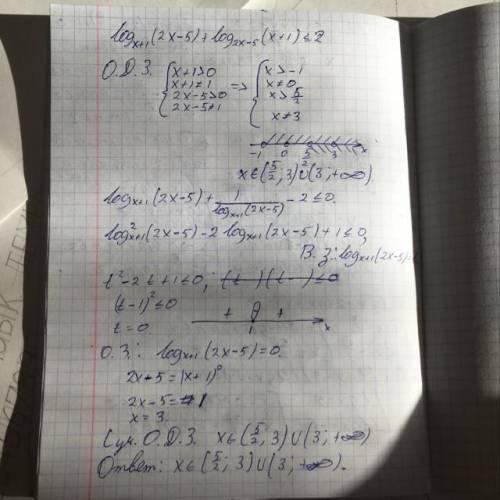 log_{x+1}(2x-5)+log_{2x-5}(x+1)≤2
О.Д.З. { x+1>0 x+1≠1 2x-5>0 2x-5≠1 => { x>-1 x≠0 x>5/2 x≠3
-1 0 5/2 3 x
x∈(5/2; 3)∪(3; +∞).
log_{x+1}(2x-5)+1/log_{x+1}(2x-5)-2≤0.
log²_{x+1}(2x-5)-2log_{x+1}(2x-5)+1≤0,
В.з.: log_{x+1}(2x-5)=
t²-2t+1≤0; (t )(t )≤0
(t-1)²≤0
t=0
+ + 1 x
О.З.: log_{x+1}(2x-5)=0.
2x-5=(x+1)⁰
2x-5=1
x=3.
О.Д.З. x∈(5/2; 3)∪(3; +∞)
Ответ: x∈(5/2; 3)∪(3; +∞).